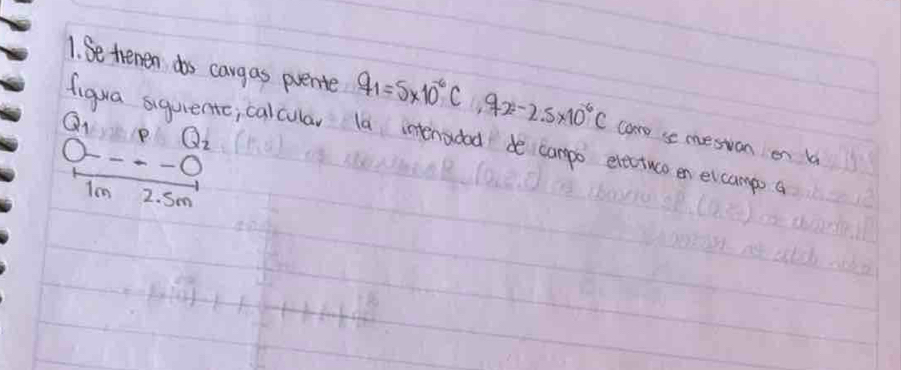 1. Se tienen dos cargas puente q1=5x10⁻⁶C, q2=-2.5x10⁻⁶C como se muestran en la
figura siguiente, calcular la intensidad de campo electrico en el campo a
Q1 P Q2
1m 2.5m